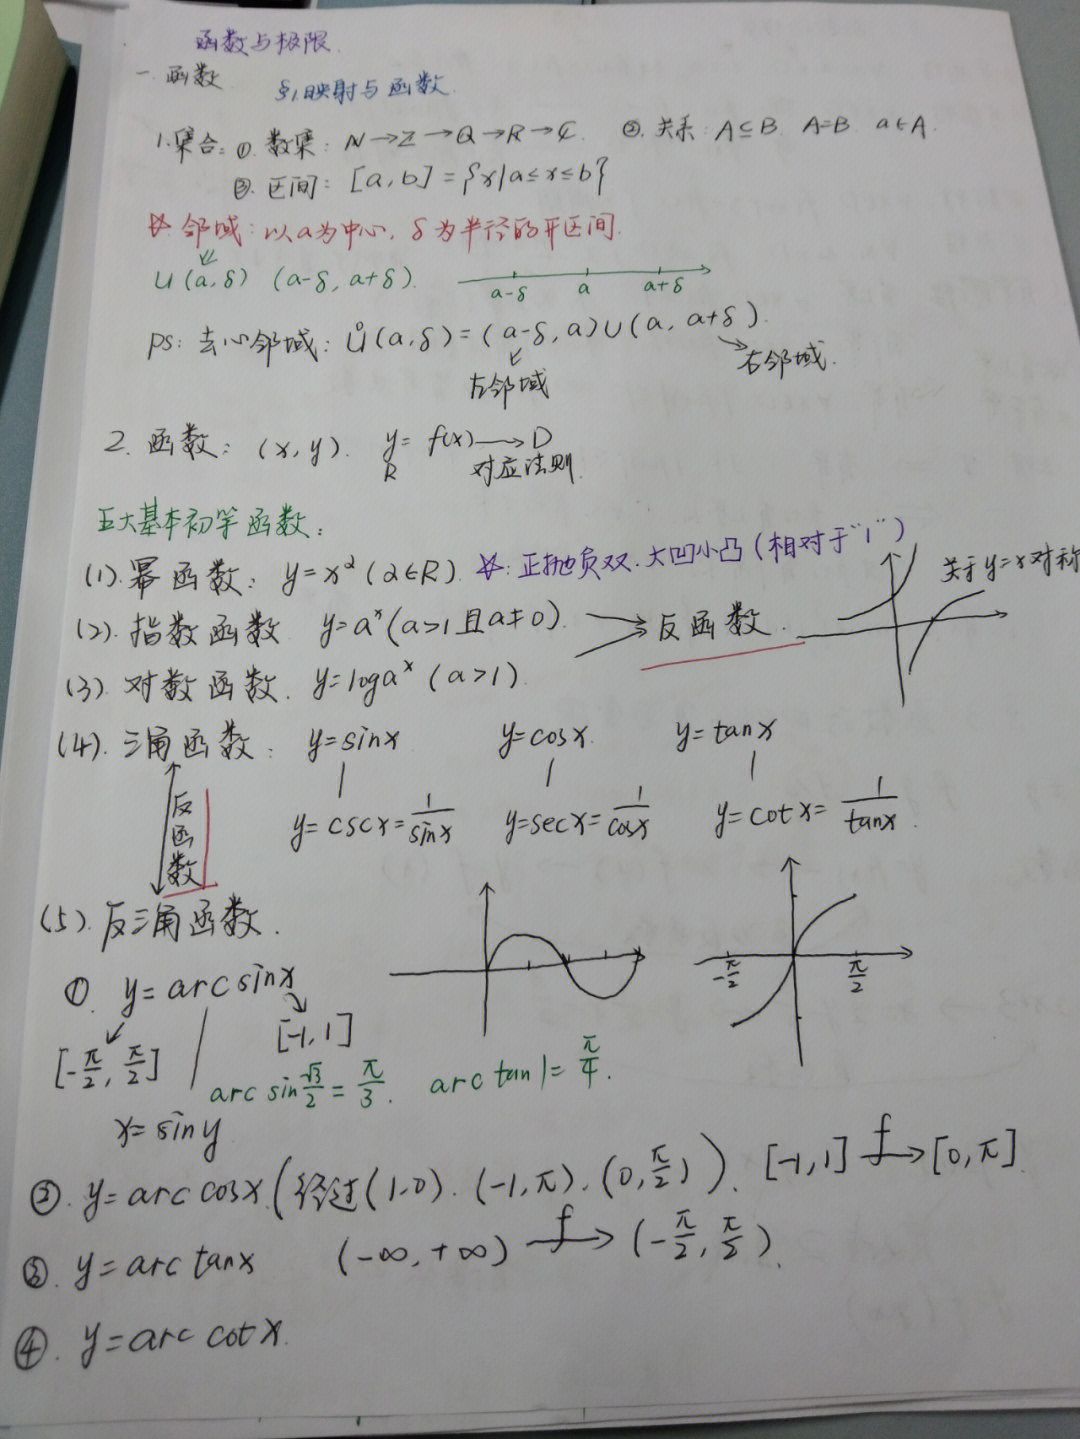 函数与极限.
一. 函数
§1映射与函数.
1.集合: ①. 数集: N→Z→Q→R→C. ②. 关系: A⊆B. A=B. a∈A.
③. 区间: [a,b]={x|a≤x≤b}
☆. 邻域: 以a为中心, δ为半径的开区间.
U(a,δ) (a-δ, a+δ).
a-δ a a+δ
ps: 去心邻域: Ů(a,δ)=(a-δ,a)∪(a, a+δ).
左邻域 右邻域.
2. 函数: (x,y). y=f(x)→D
R 对应法则.
五大基本初等函数:
(1). 幂函数: y=x^α(α∈R). ☆: 正抛负双. 大凹小凸(相对于"1")
关于y=x对称
(2). 指数函数 y=a^x(a>1且a≠0) 反函数.
(3). 对数函数. y=loga^x (a>1).
(4). 三角函数: y=sinx y=cosx. y=tanx
y=cscx=1/sinx y=secx=1/cosx y=cotx=1/tanx.
反函数
(5). 反三角函数.
-π/2 π/2
①. y=arcsinx
[-π/2, π/2] [-1,1]
arcsin√3/2=π/3. arctan1=π/4.
x=siny
②. y=arccosx.(经过(1,0).(-1,π).(0,π/2)). [-1,1] f→ [0,π].
③. y=arctanx (-∞,+∞) f→ (-π/2,π/2).
④. y=arccotx.